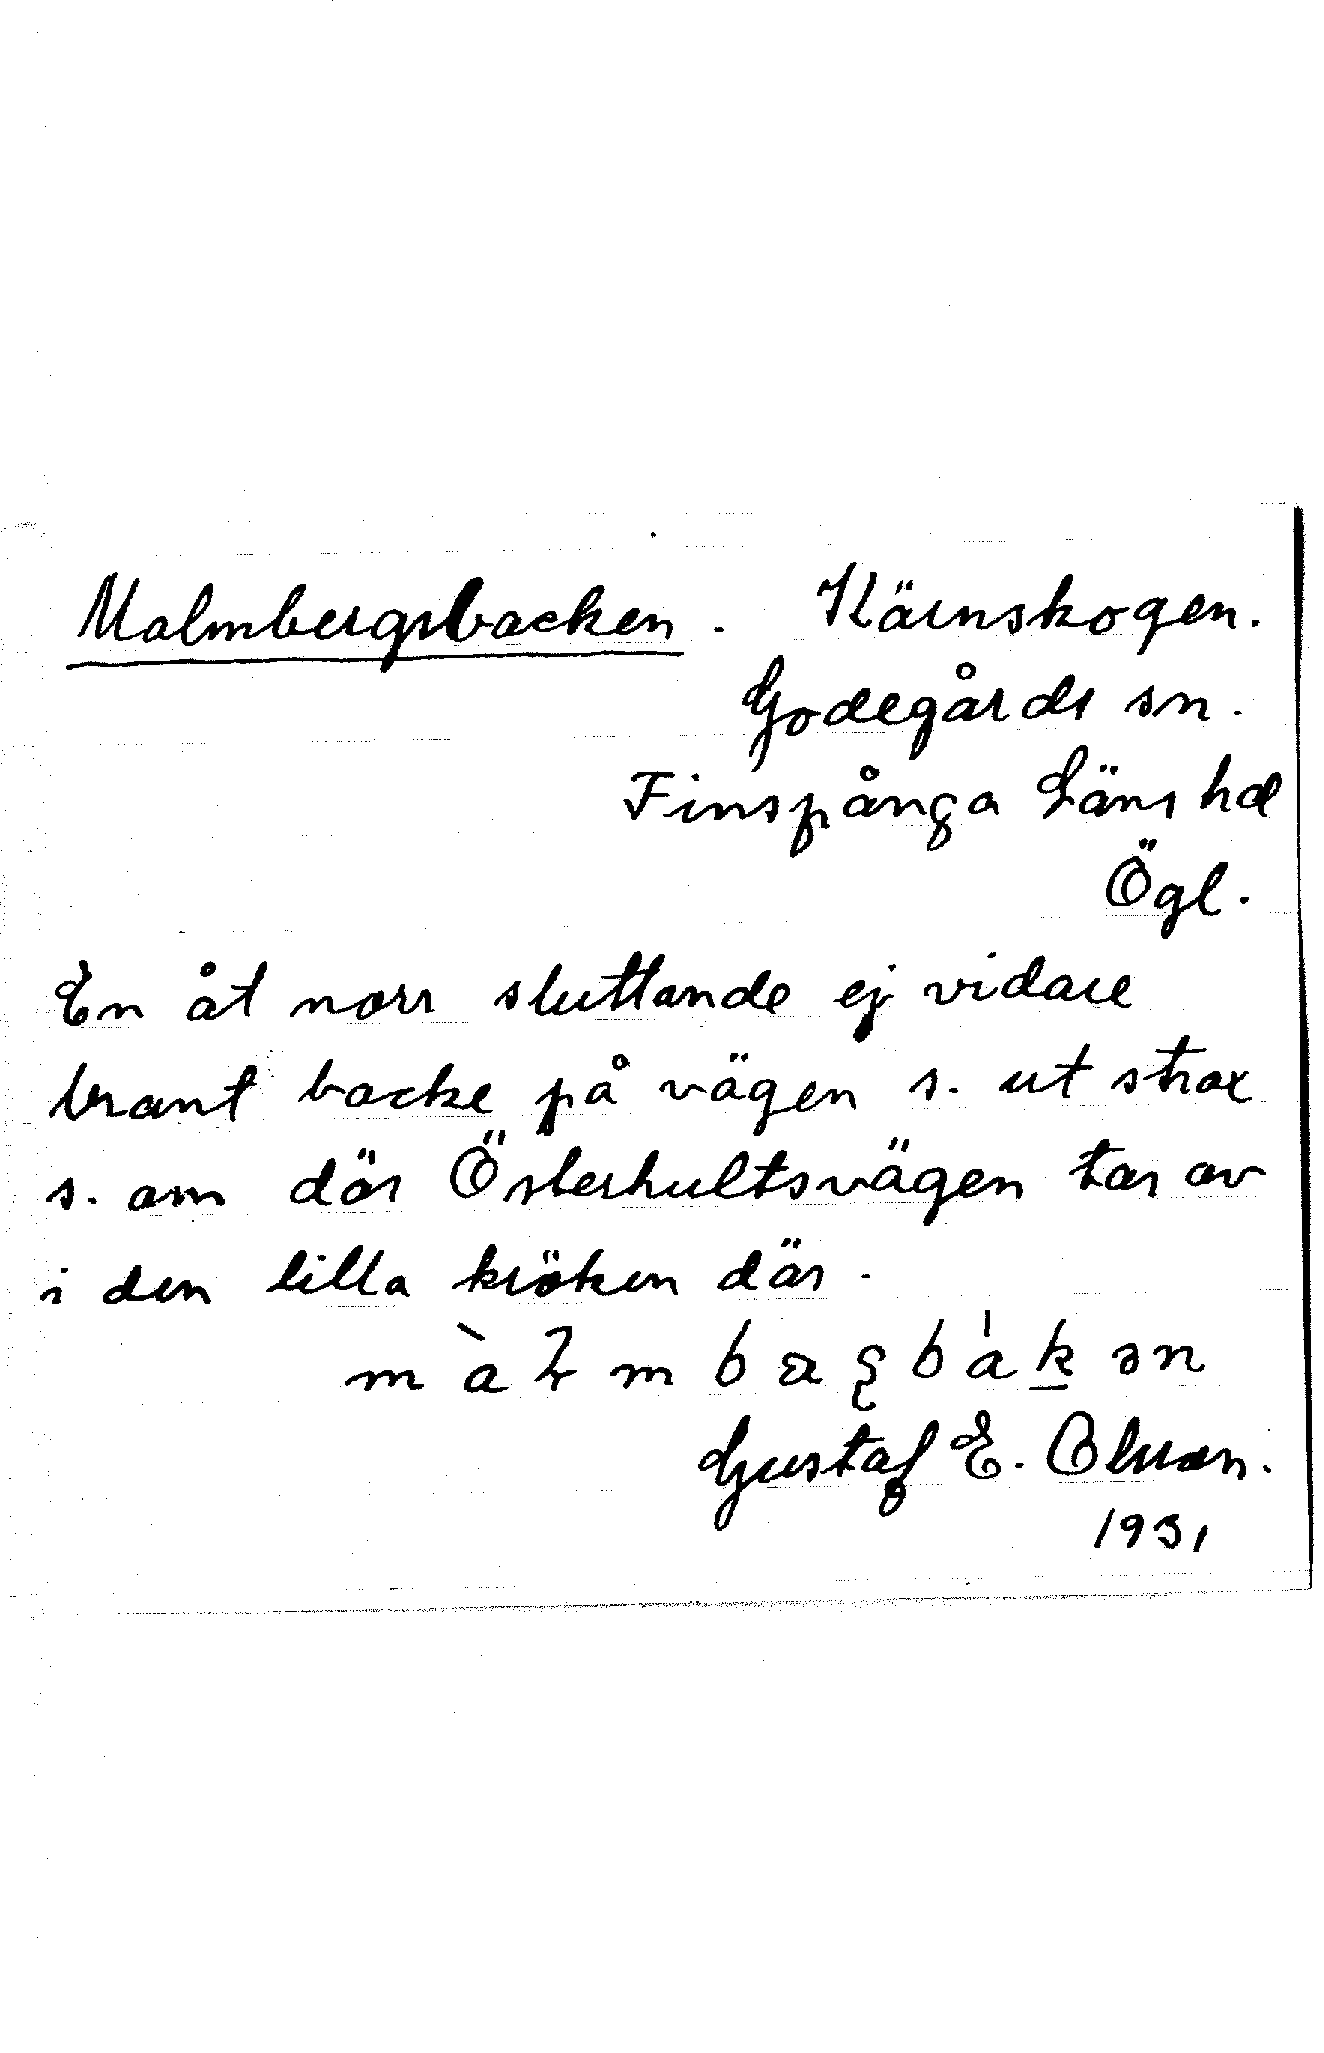 Malmbergsbacken. Kärnskogen.
Godegårds sn.
Finspånga Läns hd
Ögl.
En åt norr sluttande ej vidare
brant backe på vägen s. ut strax
s. om där Österhultsvägen tar av
i den lilla kröken där.
Gustaf E. Olsson.
1931